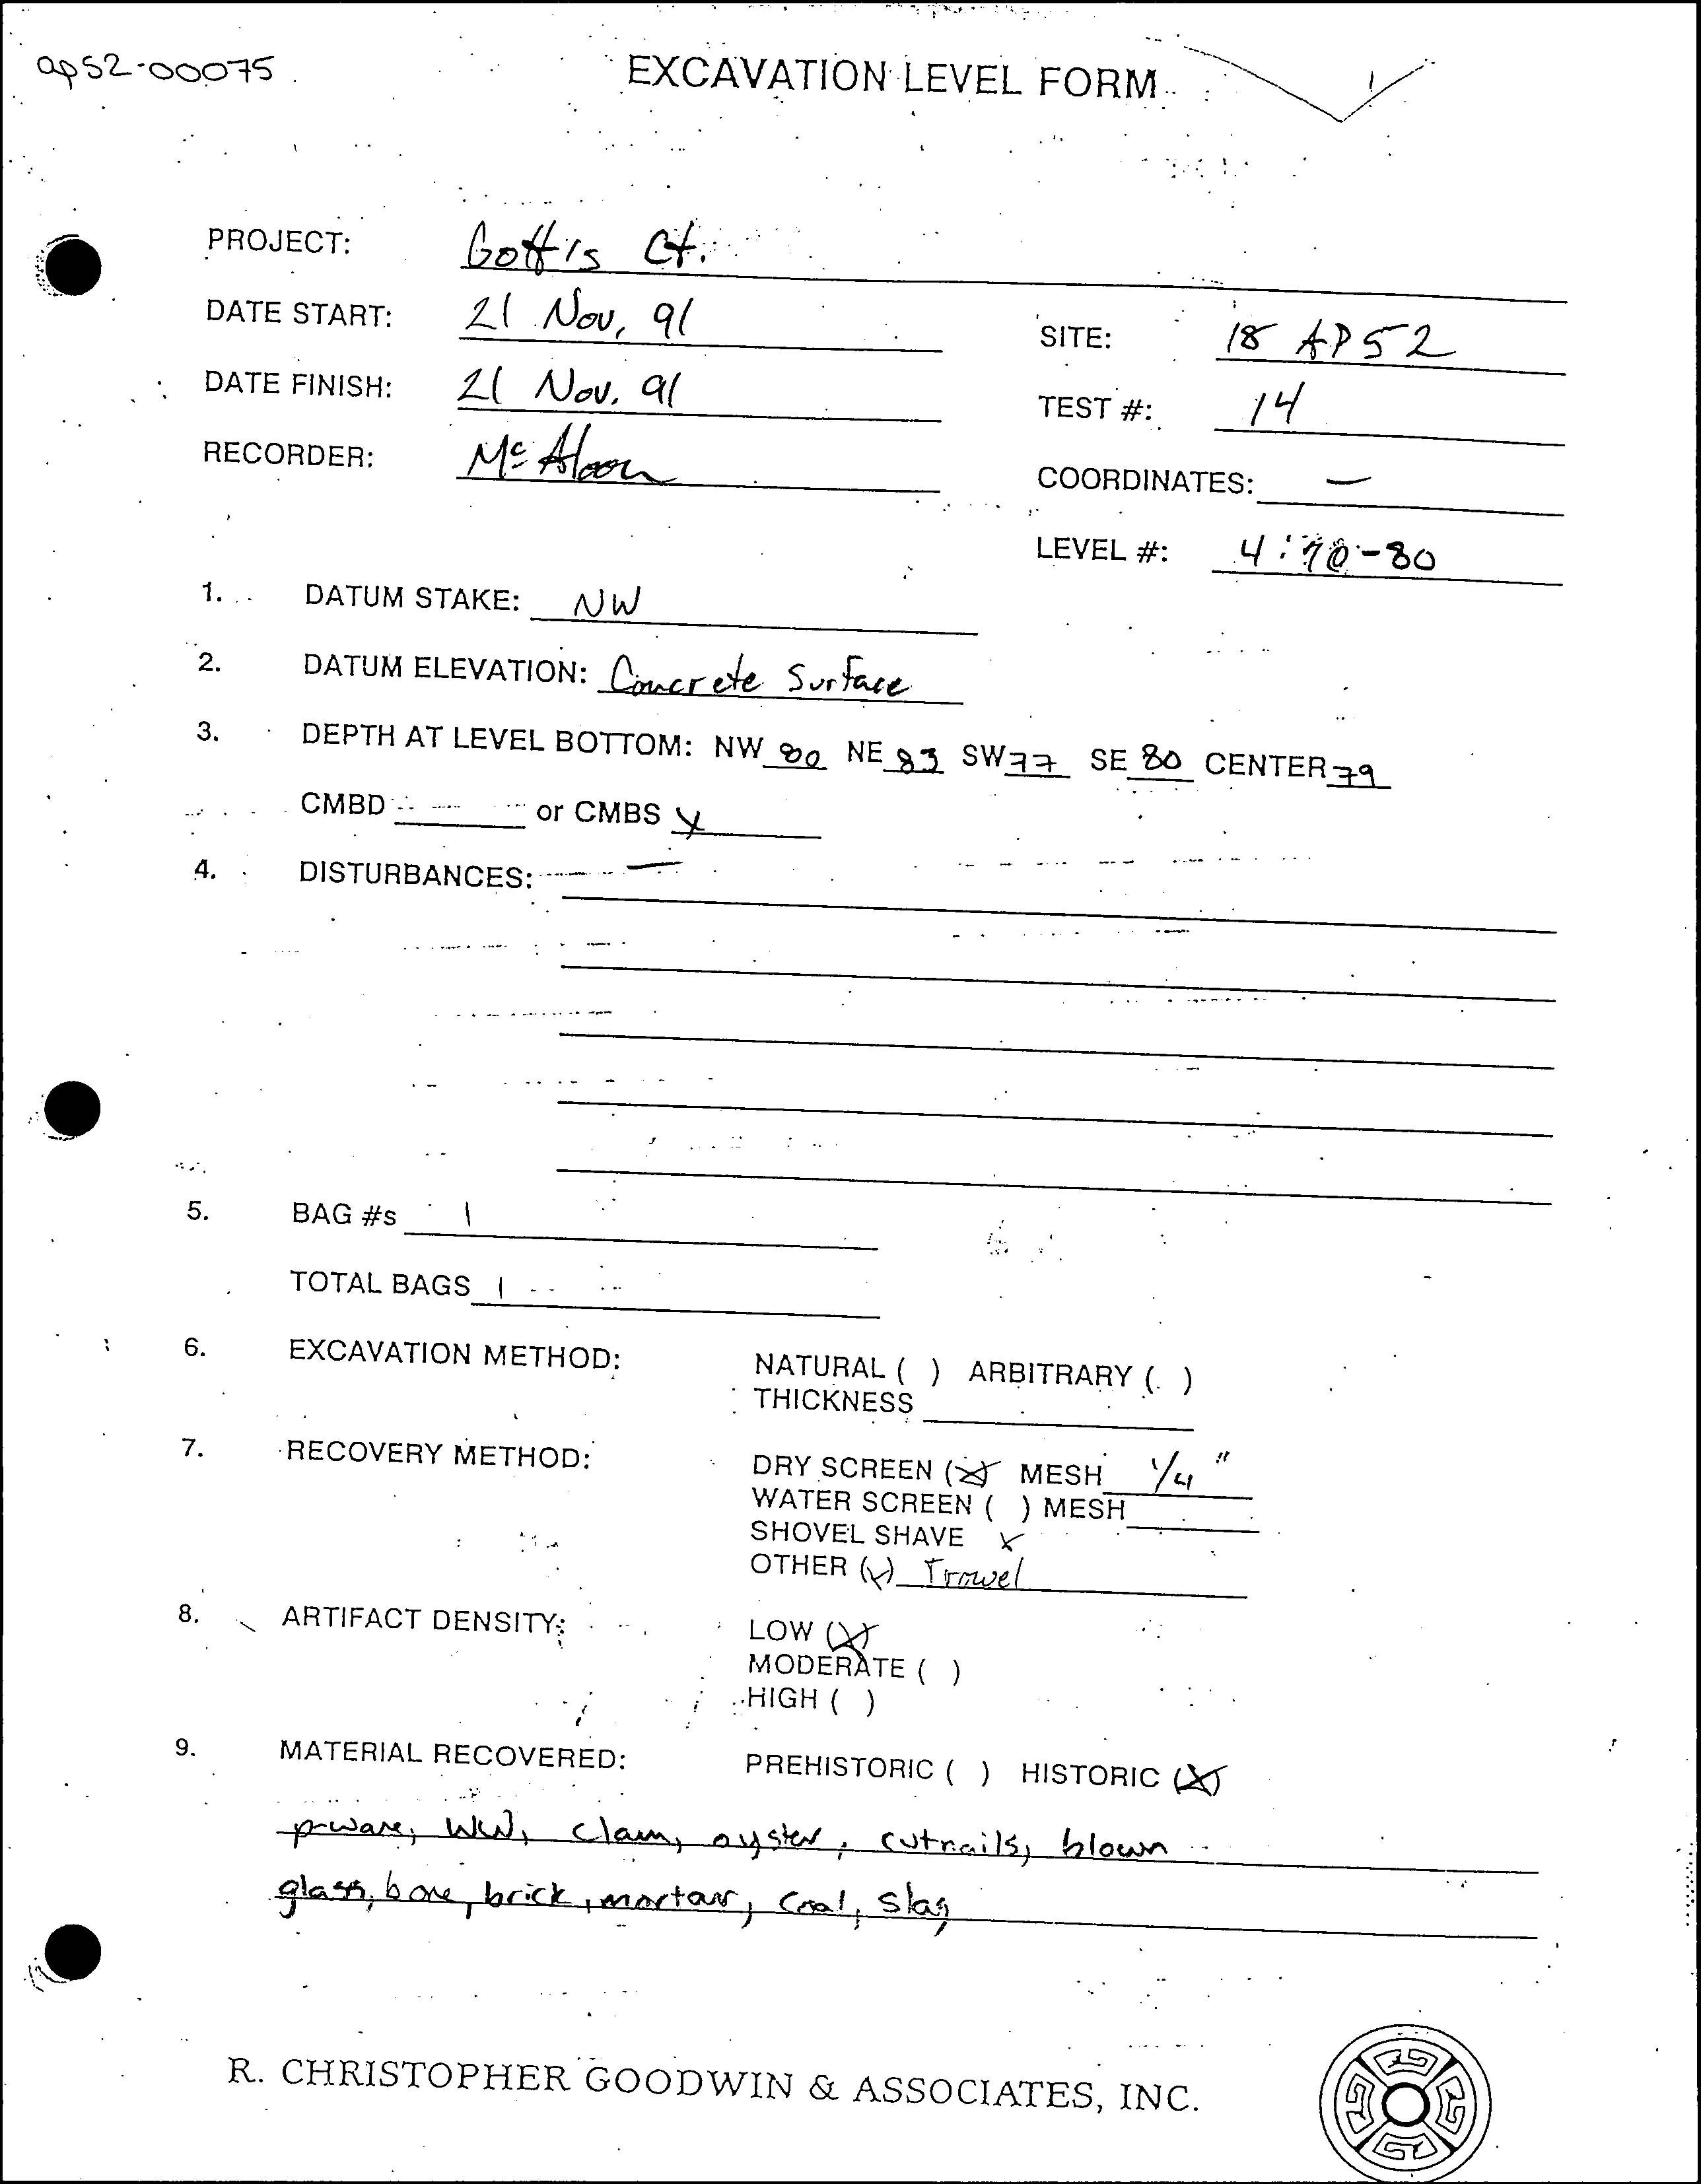 ap52-00075
EXCAVATION LEVEL FORM
PROJECT: Gott's Ct.
DATE START: 21 Nov, 91
SITE: 18 AP52
DATE FINISH: 21 Nov. 91
TEST #: 14
RECORDER: Mc Aloon
COORDINATES: —
LEVEL #: 4: 70-80
1. DATUM STAKE: NW
2. DATUM ELEVATION: Concrete Surface
3. DEPTH AT LEVEL BOTTOM: NW 80 NE 83 SW 77 SE 80 CENTER 79
CMBD — or CMBS X
4. DISTURBANCES: —
5. BAG #s 1
TOTAL BAGS 1
6. EXCAVATION METHOD: NATURAL ( ) ARBITRARY ( )
THICKNESS
7. RECOVERY METHOD: DRY SCREEN (X) MESH 1/4"
WATER SCREEN ( ) MESH
SHOVEL SHAVE X
OTHER (X) Trowel
8. ARTIFACT DENSITY: LOW (X)
MODERATE ( )
HIGH ( )
9. MATERIAL RECOVERED: PREHISTORIC ( ) HISTORIC (X)
p-ware, WW, clam, oyster, cutnails, blown
glass, bone, brick, mortar, coal, slag
R. CHRISTOPHER GOODWIN & ASSOCIATES, INC.